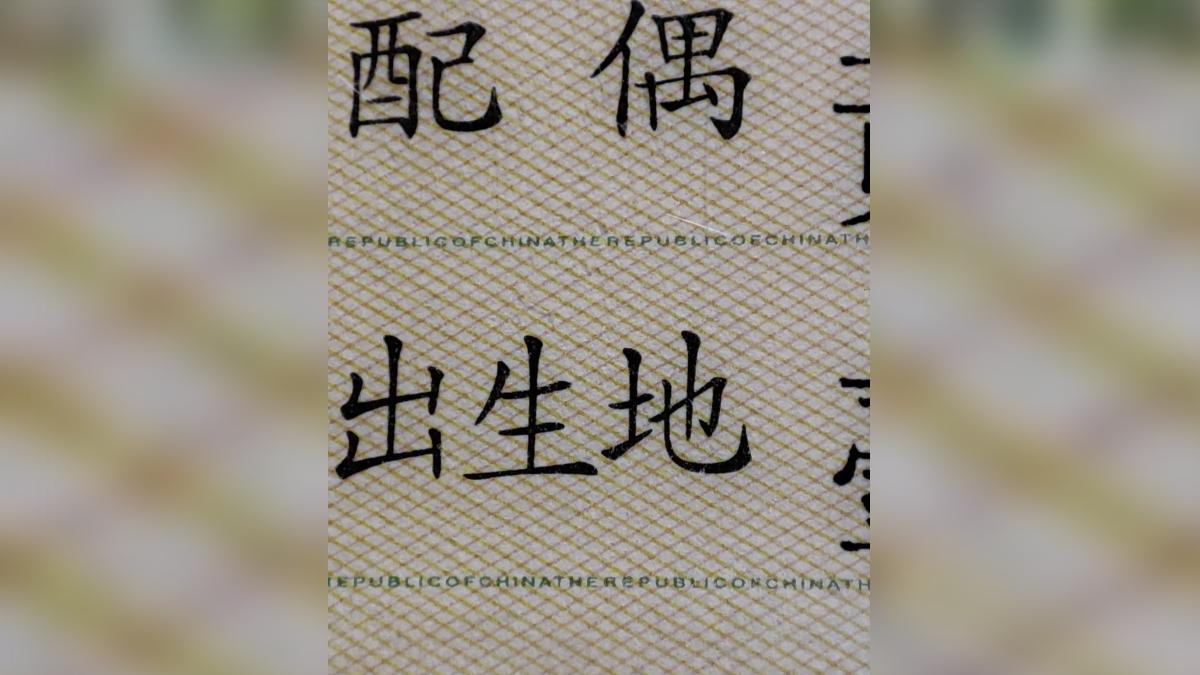 配偶
REPUBLICOFCHINATHEREPUBLICOFCHINATH
出生地
EPUBLICOFCHINATHEREPUBLICOFCHINATH